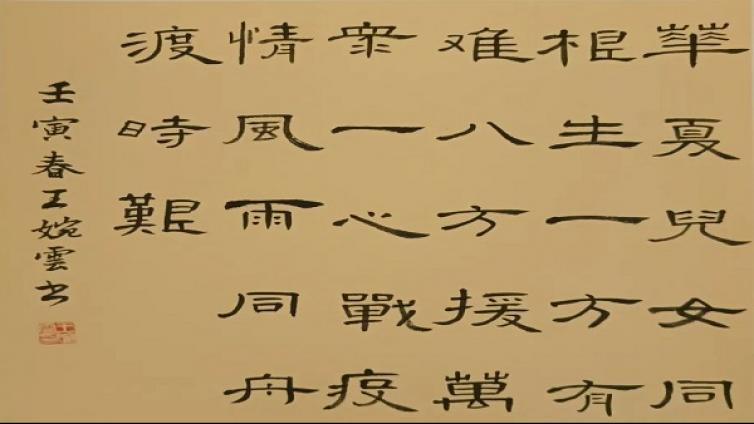 華夏兒女同
根生一方有
难八方援萬
衆一心戰疫
情風雨同舟
渡時艱
壬寅春王婉雲书